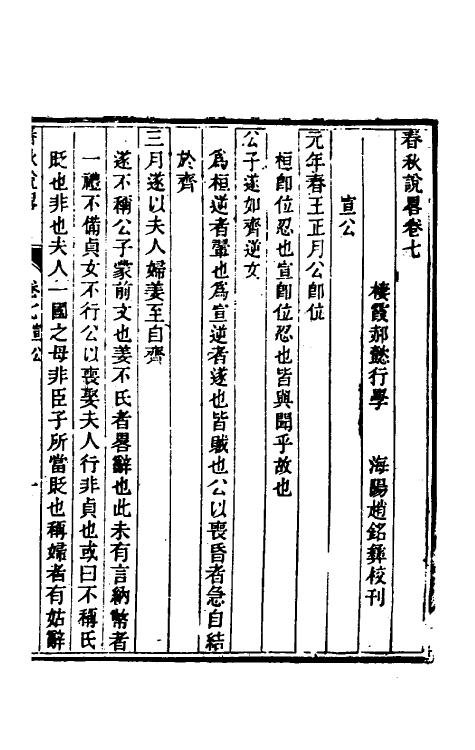 春秋說畧卷七
棲霞郝懿行學　海陽趙銘彝校刊
宣公
元年春王正月公卽位
桓卽位忍也宣卽位忍也皆與聞乎故也
公子遂如齊逆女
爲桓逆者翬也爲宣逆者遂也皆賊也公以喪昏者急自結
於齊
三月遂以夫人婦姜至自齊
遂不稱公子蒙前文也姜不氏者畧辭也此未有言納幣者
一禮不備貞女不行公以喪娶夫人行非貞也或曰不稱氏
貶也非也夫人一國之母非臣子所當貶也稱婦者有姑辭
春秋說畧　卷七宣公　一